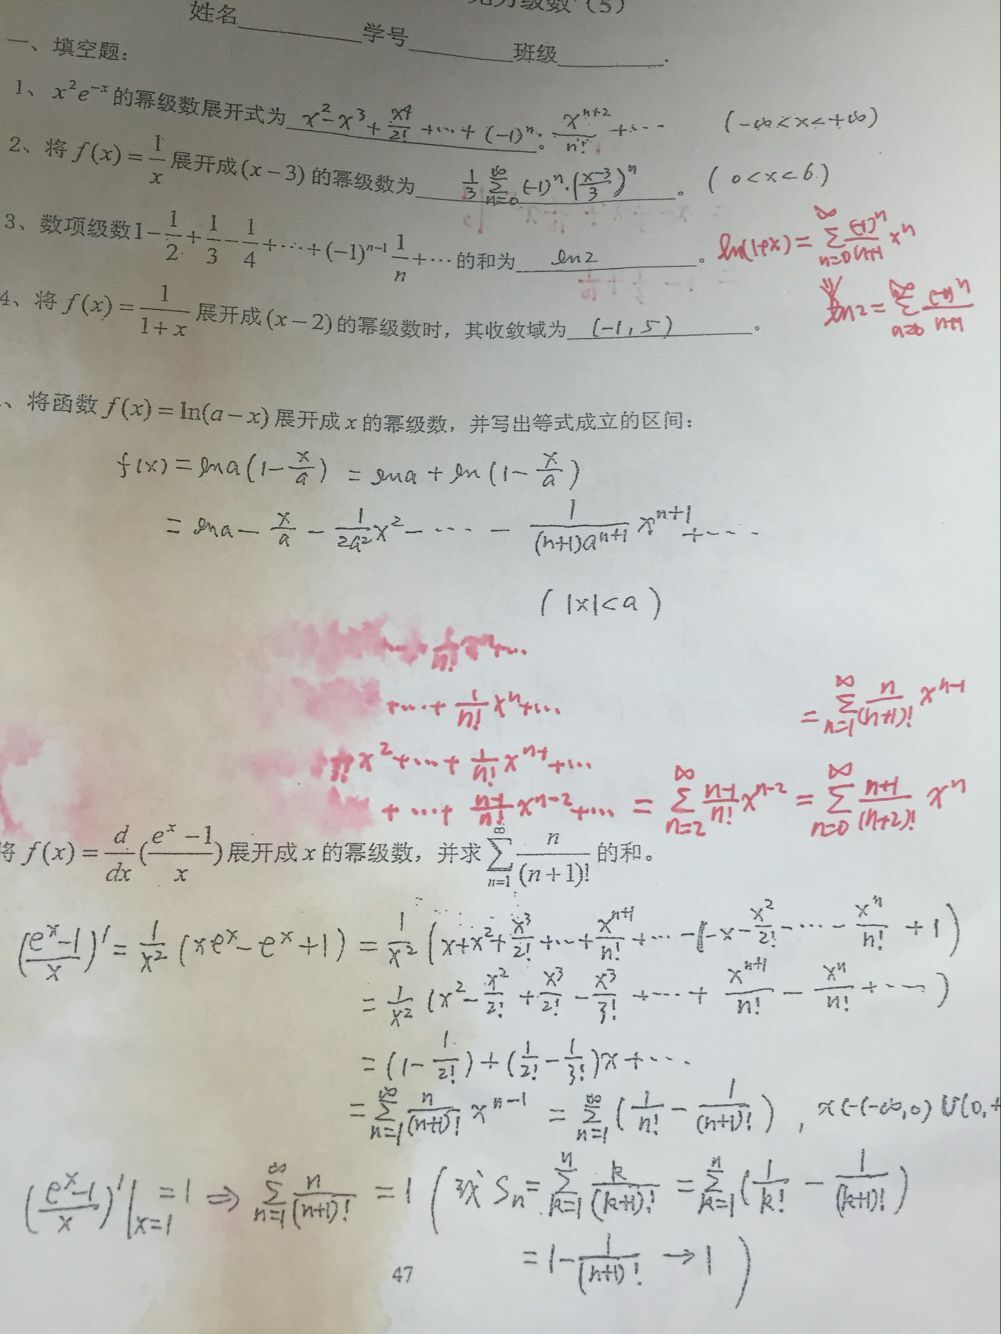 级数（5）
姓名________学号________班级________.
一、填空题：
1、x²e⁻ˣ的幂级数展开式为 x²-x³+x⁴/2!+⋯+(-1)ⁿ·xⁿ⁺²/n!+⋯。 (-∞<x<+∞)
2、将f(x)=1/x展开成(x-3)的幂级数为 1/3 ∑_{n=0}^{∞} (-1)ⁿ·((x-3)/3)ⁿ。 (0<x<6)
3、数项级数1-1/2+1/3-1/4+⋯+(-1)ⁿ⁻¹1/n+⋯的和为 ln2。
ln(1+x)=∑_{n=0}^{∞} (-1)ⁿ/(n+1) xⁿ
4、将f(x)=1/(1+x)展开成(x-2)的幂级数时，其收敛域为 (-1,5)。
ln2=∑_{n=0}^{∞} (-1)ⁿ/(n+1)
、将函数f(x)=ln(a-x)展开成x的幂级数，并写出等式成立的区间：
f(x)=lna(1-x/a)=lna+ln(1-x/a)
=lna-x/a-1/(2a²)x²-⋯-1/((n+1)aⁿ⁺¹)xⁿ⁺¹+⋯
(|x|<a)
1/n! xⁿ+⋯
+⋯+1/n! xⁿ+⋯
=∑_{n=1}^{∞} n/(n+1)! xⁿ⁻¹
x²+⋯+1/n! xⁿ⁻¹+⋯
+⋯+(n-1)/n! xⁿ⁻²+⋯=∑_{n=2}^{∞} (n-1)/n! xⁿ⁻²=∑_{n=0}^{∞} (n+1)/(n+2)! xⁿ
将f(x)=d/dx((eˣ-1)/x)展开成x的幂级数，并求∑_{n=1}^{∞} n/(n+1)!的和。
((eˣ-1)/x)'=1/x²(xeˣ-eˣ+1)=1/x²(x+x²+x³/2!+⋯+xⁿ⁺¹/n!+⋯-1-x-x²/2!-⋯-xⁿ/n!+1)
=1/x²(x²-x²/2!+x³/2!-x³/3!+⋯+xⁿ⁺¹/n!-xⁿ/n!+⋯)
=(1-1/2!)+(1/2!-1/3!)x+⋯
=∑_{n=1}^{∞} n/(n+1)! xⁿ⁻¹=∑_{n=1}^{∞}(1/n!-1/(n+1)!), x∈(-∞,0)∪(0,+
((eˣ-1)/x)'|_{x=1}=1⇒∑_{n=1}^{∞} n/(n+1)!=1 (或 Sₙ=∑_{k=1}^{n} k/(k+1)!=∑_{k=1}^{n}(1/k!-1/(k+1)!)
=1-1/(n+1)!→1)
47